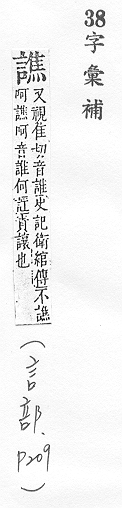 38字彙補
譙
又視隹切音誰史記衛綰傳不譙
呵譙呵音誰何註責讓也
(言部、P209)